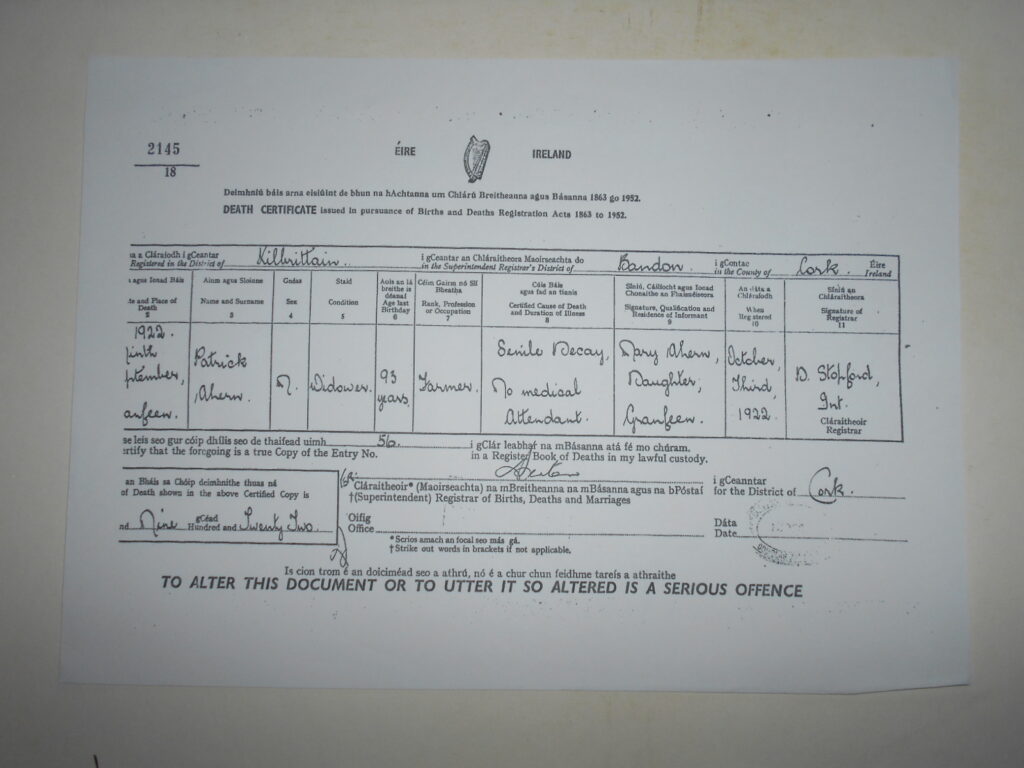 2145
18
ÉIRE IRELAND
Deimhniú báis arna eisiúint de bhun na hAchtanna um Chlárú Breitheanna agus Básanna 1863 go 1952.
DEATH CERTIFICATE issued in pursuance of Births and Deaths Registration Acts 1863 to 1952.
a Cláraíodh i gCeantar i gCeantar an Chláraitheora Maoirseachta do i gContae Éire
Registered in the District of Kilbrittain. in the Superintendent Registrar's District of Bandon. in the County of Cork. Ireland
agus Ionad Báis
te and Place of Death
2
Ainm agus Sloinne
Name and Surname
3
Gnéas
Sex
4
Staid
Condition
5
Aois an lá
breithe is
déanaí
Age last
Birthday
6
Céim Gairm nó Slí
Bheatha
Rank, Profession
or Occupation
7
Cúis Báis
agus fad an tinnis
Certified Cause of Death
and Duration of Illness
8
Síniú, Cáilíocht agus Ionad
Chonaithe an Fhaisnéiseora
Signature, Qualification and
Residence of Informant
9
An dáta a
Cláraíodh
When
Registered
10
Síniú an
Chláraitheora
Signature of
Registrar
11
1922.
inth
ptember,
anfeen.
Patrick
Ahern.
M.
Widower.
93
years.
Farmer.
Senile Decay,
No medical
Attendant.
Mary Ahern,
Daughter,
Granfeen.
October,
Third,
1922.
D. Stopford,
Int.
Cláraitheoir
Registrar
se leis seo gur cóip dhílis seo de thaifead uimh 56. i gClár leabhar na mBásanna atá fé mo chúram.
ertify that the foregoing is a true Copy of the Entry No. in a Register Book of Deaths in my lawful custody.
an Bháis sa Chóip deimhnithe thuas ná
of Death shown in the above Certified Copy is
gCéad
nd Nine Hundred and Twenty Two.
Cláraitheoir* (Maoirseachta) na mBreitheanna na mBásanna agus na bPóstaí
†(Superintendent) Registrar of Births, Deaths and Marriages
i gCeanntar
for the District of Cork.
Oifig
Office
Dáta
Date
*Scrios amach an focal seo más gá.
†Strike out words in brackets if not applicable.
Is cion trom é an doiciméad seo a athrú, nó é a chur chun feidhme tareis a athraithe
TO ALTER THIS DOCUMENT OR TO UTTER IT SO ALTERED IS A SERIOUS OFFENCE